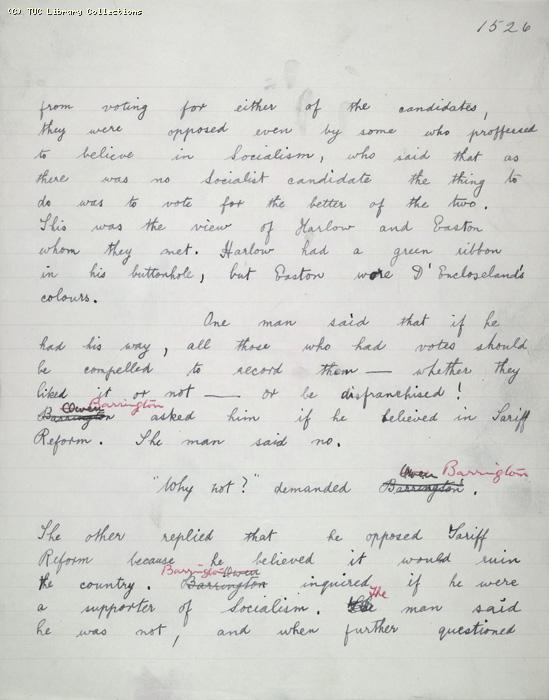 (C) TUC Library Collections
1526
from voting for either of the candidates,
they were opposed even by some who proffessed
to believe in Socialism, who said that as
there was no Socialist candidate the thing to
do was to vote for the better of the two.
This was the view of Harlow and Easton
whom they met. Harlow had a green ribbon
in his buttonhole, but Easton wore D'Encloseland's
colours.
One man said that if he
had his way, all those who had votes should
be compelled to record them — whether they
liked it or not — or be disfranchised!
Owen Barrington
Barrington asked him if he believed in Tariff
Reform. The man said no.
Owen Barrington
"Why not?" demanded Barrington.
The other replied that he opposed Tariff
Reform because he believed it would ruin
Barrington Owen
the country. Barrington inquired if he were
The
a supporter of Socialism. man said
he was not, and when further questioned